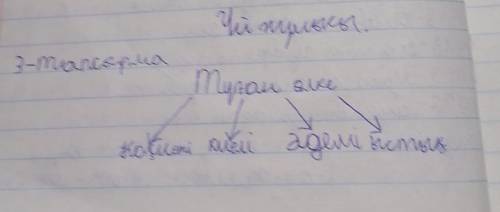 Үй жұмысы.
3-тапсырма
Туған өлке
әдемі ыстық